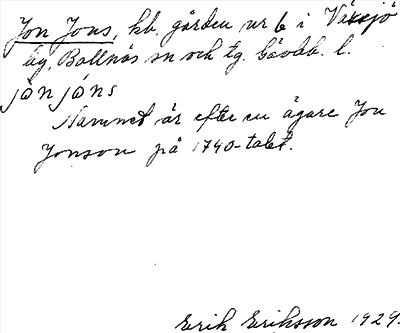 Jon Jons, kb. gården nr 6 i Växsjö
by, Bollnäs sn och tg. Gävleb. l.
jòn jóns
Namnet är efter en ägare Jon
Jonson på 1740-talet.
Erik Eriksson 1929.